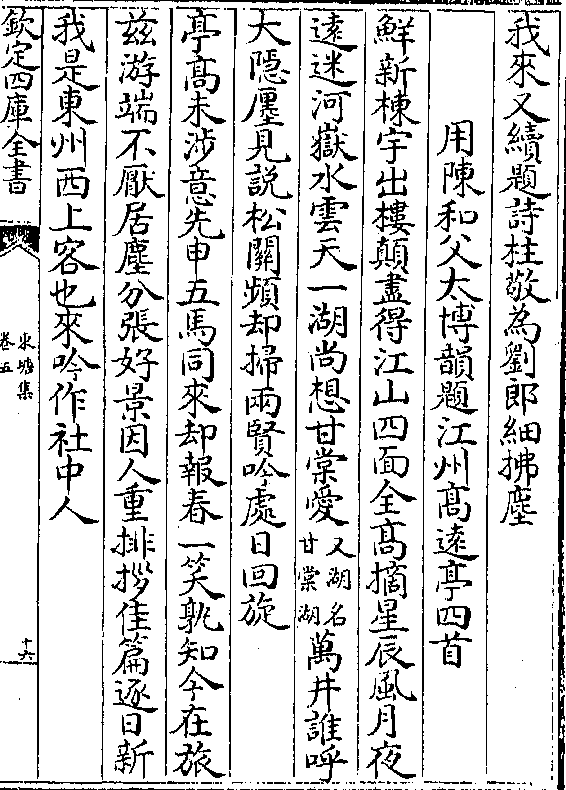 我來又續題詩柱敬為劉郎細拂塵
用陳和父太博韻題江州髙逺亭四首
鮮新棟宇出樓顛盡得江山四面全髙摘星辰風月夜
逺迷河嶽水雲天一湖尚想甘棠愛又湖名甘棠湖萬井誰呼
大隱㕓見説松闗頻却掃兩賢吟處日回旋
亭髙未渉意先申五馬同來却報春一笑孰知今在旅
兹游端不厭居塵分張好景因人重排拶佳篇逐日新
我是東州西上客也來吟作社中人
欽定四庫全書
東塘集
卷五
十六